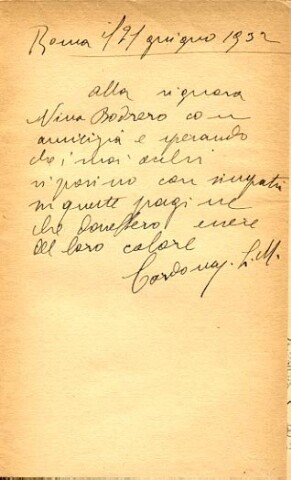 Roma 21 giugno 1932
alla signora
Nina Bodrero con
amicizia e sperando
che i suoi
si posino con simpatia
in queste pagine
che dovrebbero
del loro calore
Cardona, L. M.